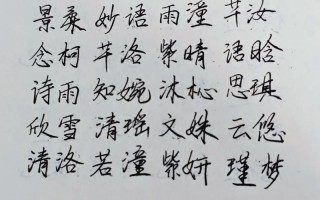 景桑 妙语 雨潼 芊汝
念柯 芊洛 紫晴 语晗
诗雨 知婉 沐杺 思琪
欣雪 清瑶 文姝 云悠
清洛 若潼 紫妍 瑾梦